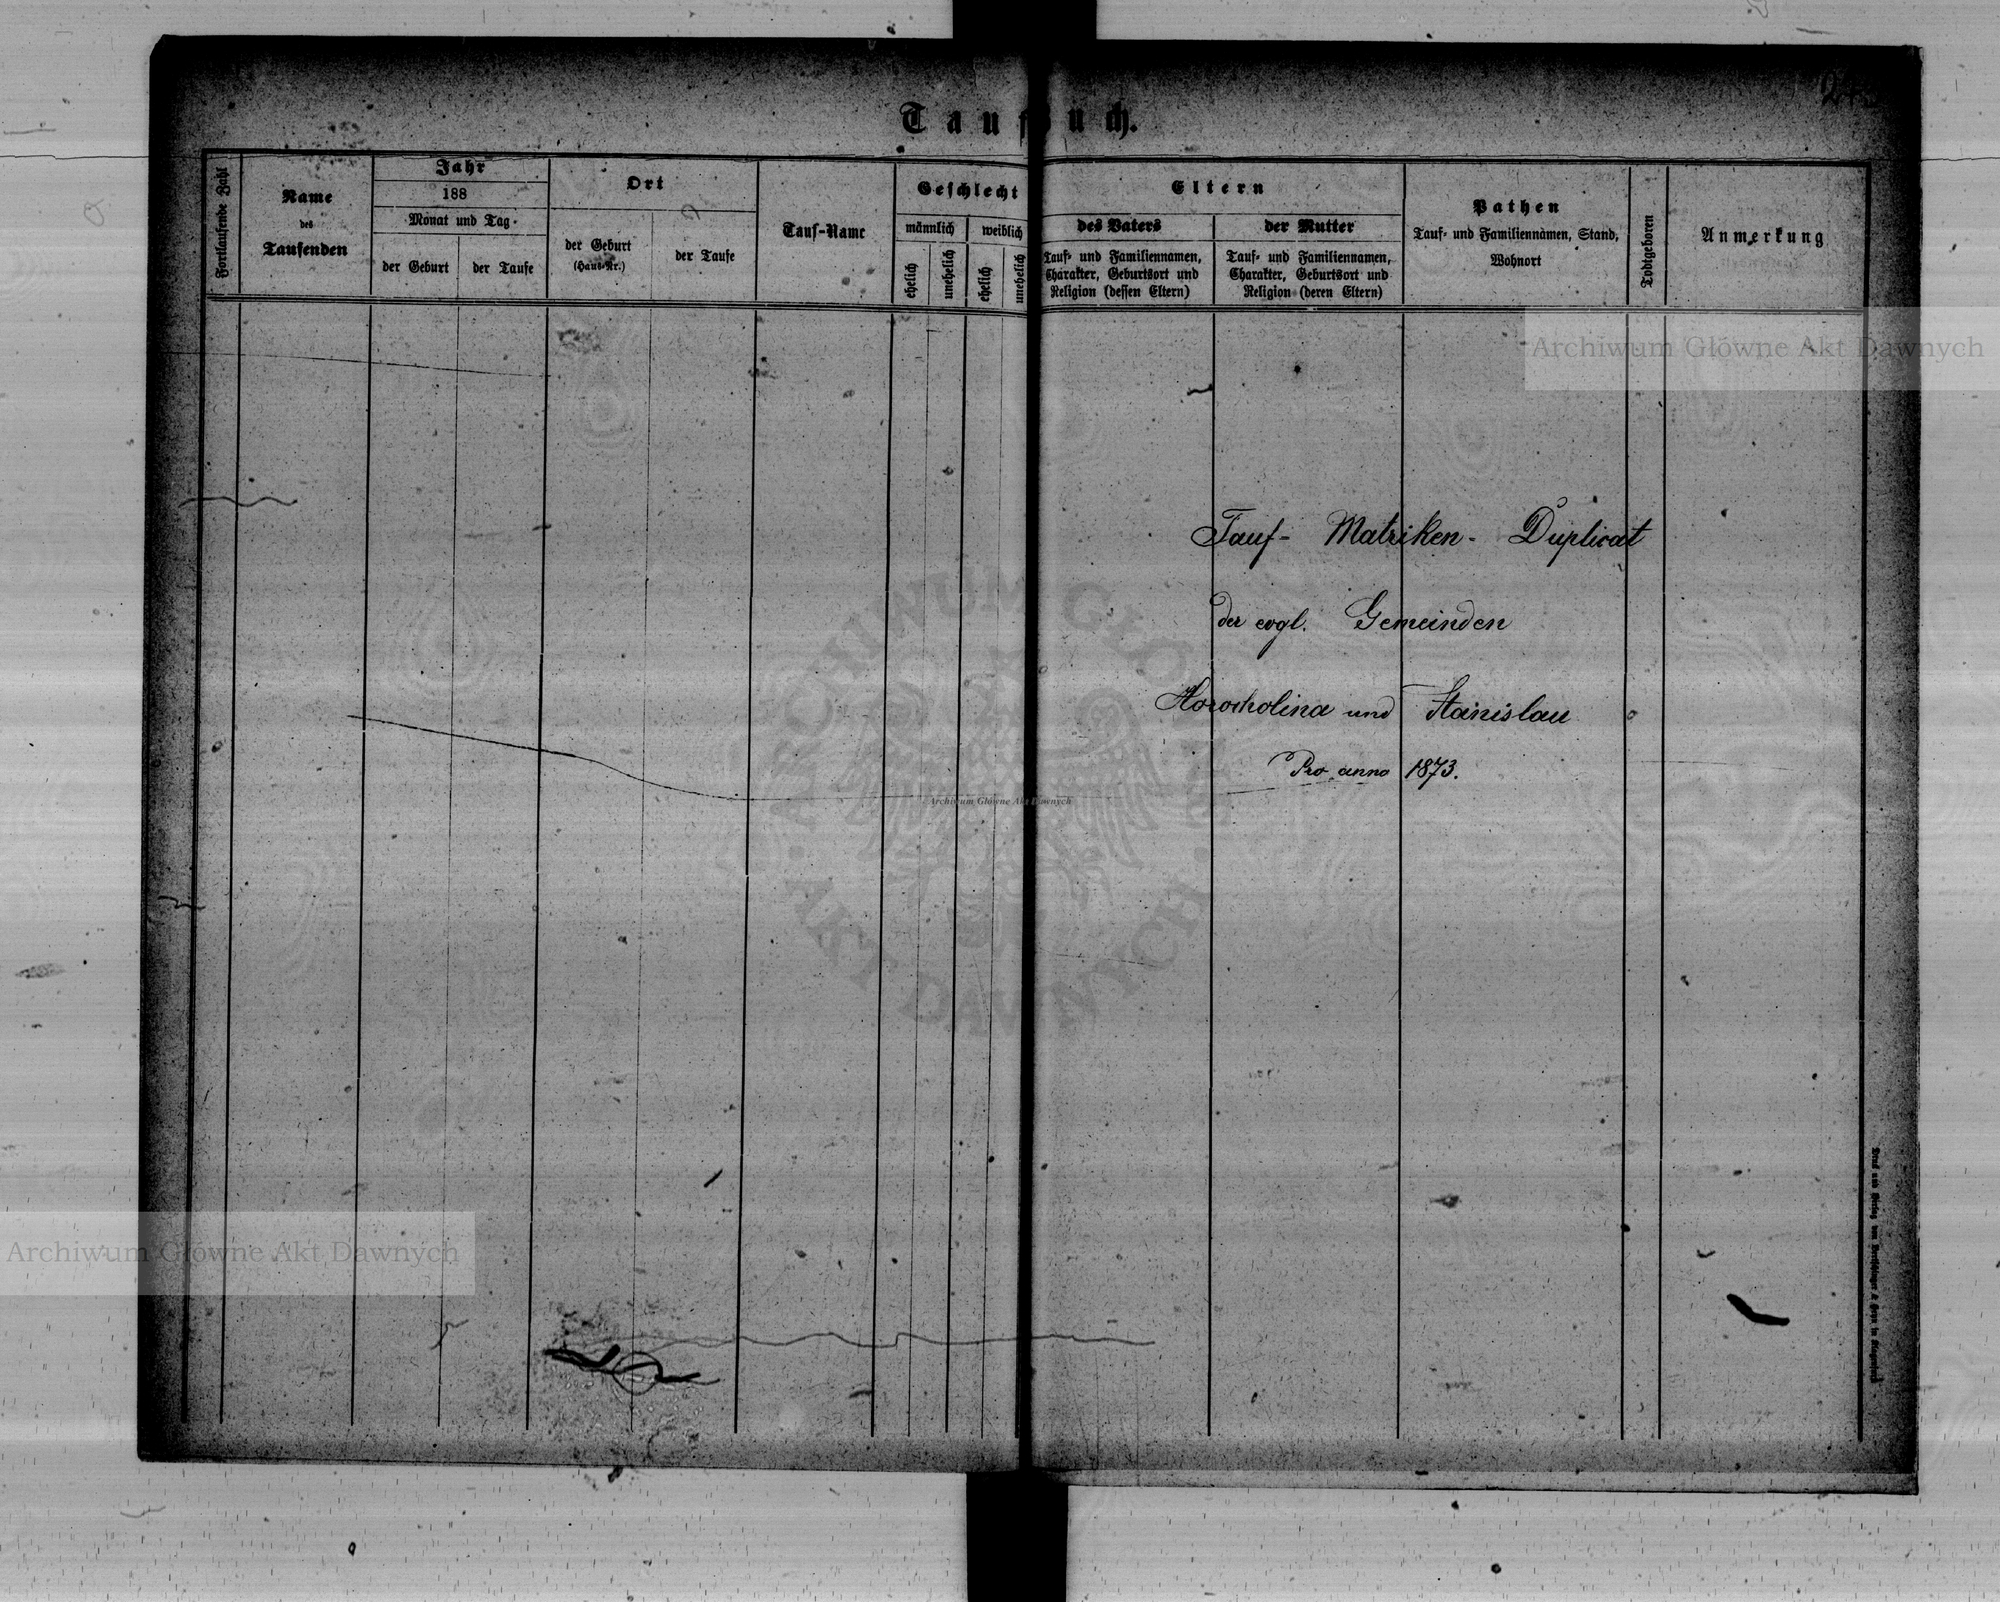 Taufbuch.
Fortlaufende Zahl
Name
des
Taufenden
Jahr
188
Monat und Tag
der Geburt
der Taufe
Ort
der Geburt
(Haus-Nr.)
der Taufe
Tauf-Name
Geschlecht
männlich
weiblich
ehelich
unehelich
ehelich
unehelich
Eltern
des Vaters
Tauf- und Familiennamen,
Charakter, Geburtsort und
Religion (dessen Eltern)
der Mutter
Tauf- und Familiennamen,
Charakter, Geburtsort und
Religion (deren Eltern)
Pathen
Tauf- und Familiennamen, Stand,
Wohnort
Todtgeboren
Anmerkung
Tauf- Matriken- Duplicat
der evgl. Gemeinden
Horocholina und Stanislau
Pro anno 1873.
Archiwum Główne Akt Dawnych
Archiwum Główne Akt Dawnych
Archiwum Główne Akt Dawnych
ARCHIWUM GŁÓWNE
AKT DAWNYCH